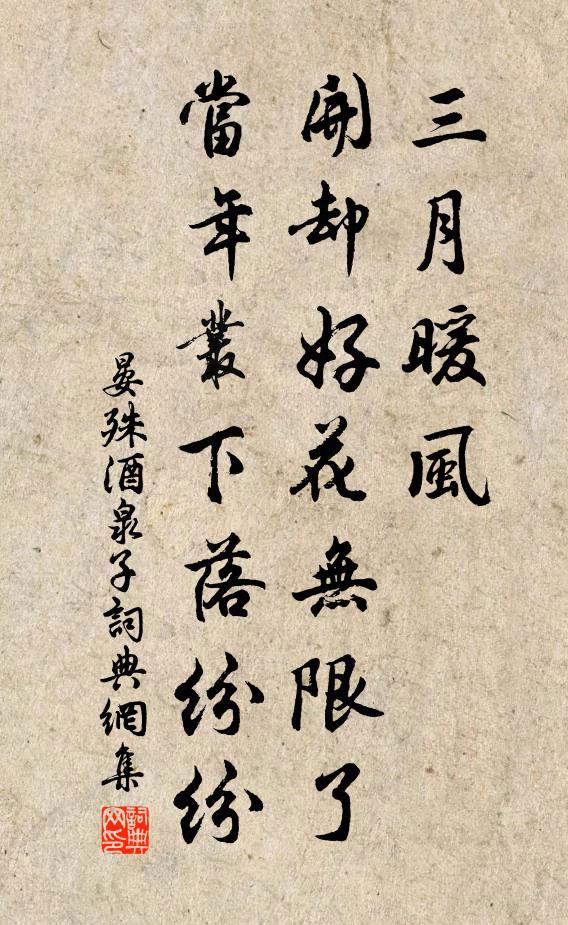 三月暖風
開却好花無限了
當年叢下落紛紛
晏殊酒泉子詞典網集
詞典网印